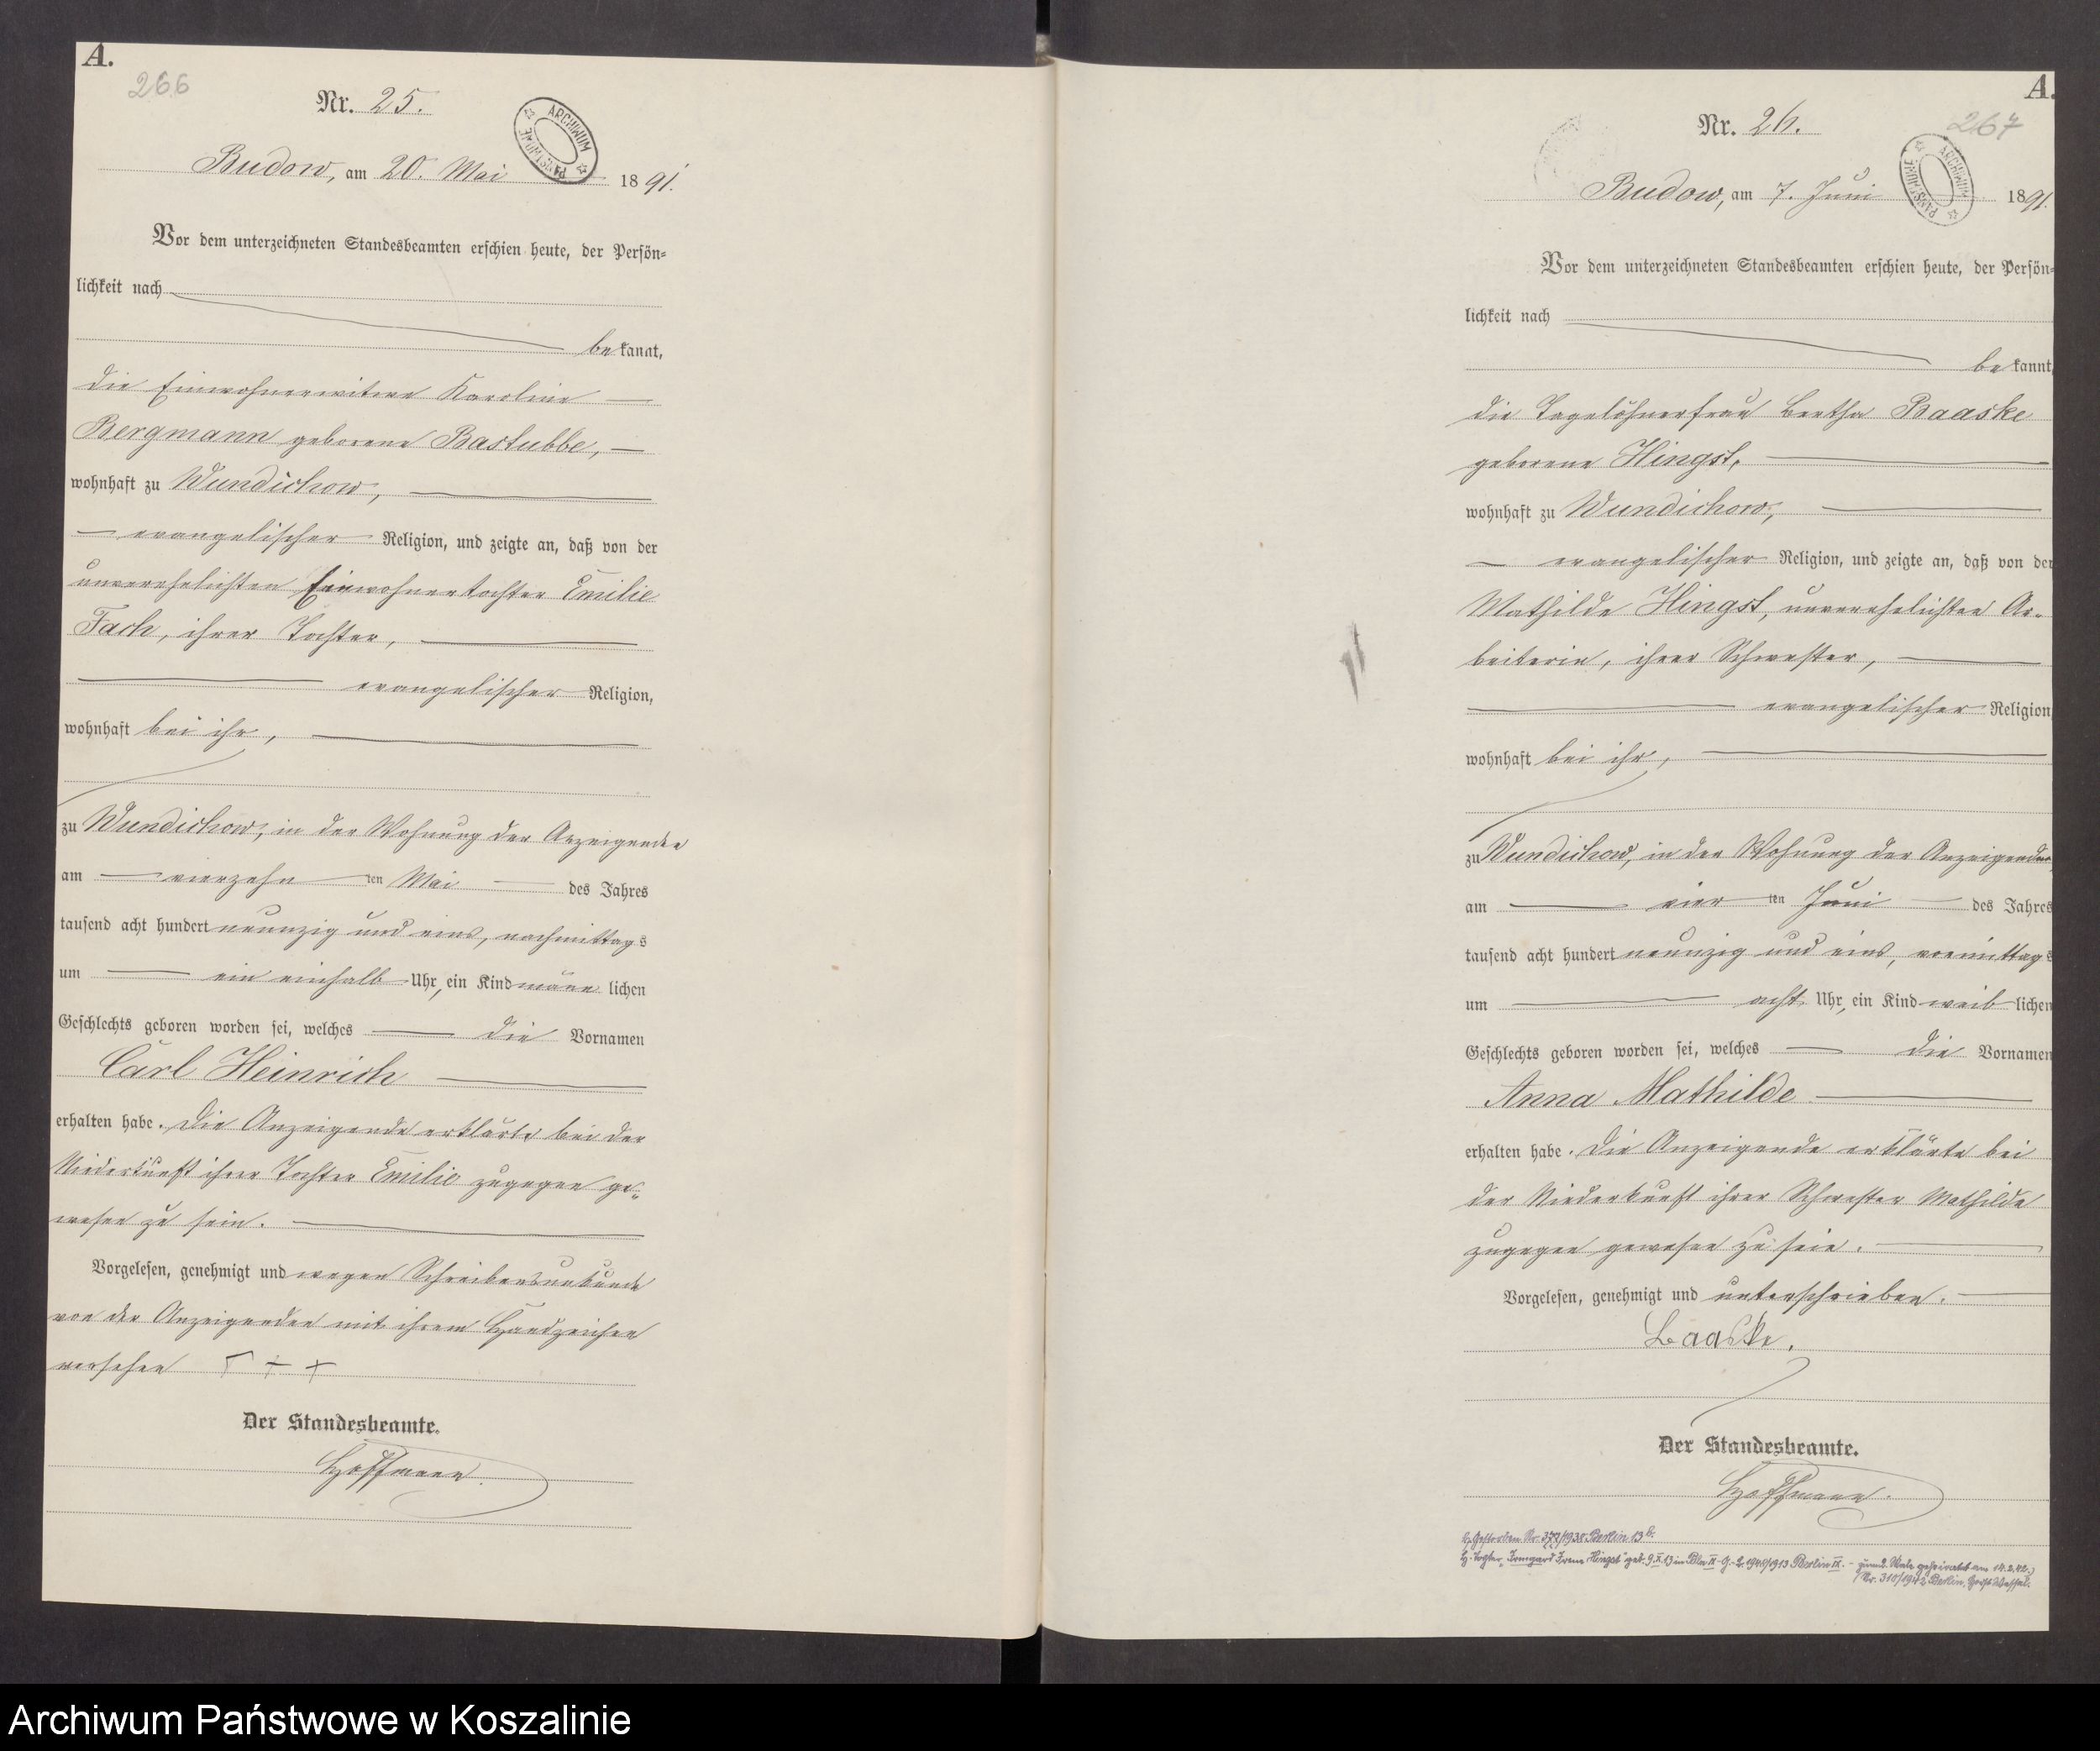 A.
266
Nr. 25.
ARCHIWUM PAŃSTWOWE
Budow, am 20. Mai 1891.
Vor dem unterzeichneten Standesbeamten erschien heute, der Persön=
lichkeit nach
bekannt,
die Einwohnerwitwe Karoline
Bergmann geborene Bastubbe,
wohnhaft zu Wundichow,
evangelischer Religion, und zeigte an, daß von der
unverehelichten Einwohnertochter Emilie
Fach, ihrer Tochter,
evangelischer Religion,
wohnhaft bei ihr,
zu Wundichow, in der Wohnung der Anzeigenden
am vierzehn ten Mai des Jahres
tausend acht hundert neunzig und eins, nachmittags
um ein einhalb Uhr, ein Kind männlichen
Geschlechts geboren worden sei, welches die Vornamen
Carl Heinrich
erhalten habe. Die Anzeigende erklärte bei der
Niederkunft ihrer Tochter Emilie zugegen ge=
wesen zu sein.
Vorgelesen, genehmigt und wegen Schreibensunkunde
von der Anzeigenden mit ihrem Handzeichen
versehen + + +
Der Standesbeamte.
Hoffmann.
A.
267
Nr. 26.
ARCHIWUM PAŃSTWOWE
Budow, am 7. Juni 1891.
Vor dem unterzeichneten Standesbeamten erschien heute, der Persön=
lichkeit nach
bekannt,
die Tagelöhnerfrau Bertha Baaske
geborene Hingst,
wohnhaft zu Wundichow,
evangelischer Religion, und zeigte an, daß von der
Mathilde Hingst, unverehelichten Ar=
beiterin, ihrer Schwester,
evangelischer Religion
wohnhaft bei ihr,
zu Wundichow, in der Wohnung der Anzeigenden,
am vier ten Juni des Jahres
tausend acht hundert neunzig und eins, vormittags
um acht Uhr, ein Kind weiblichen
Geschlechts geboren worden sei, welches die Vornamen
Anna Mathilde
erhalten habe. Die Anzeigende erklärte bei
der Niederkunft ihrer Schwester Mathilde
zugegen gewesen zu sein.
Vorgelesen, genehmigt und unterschrieben.
Baaske.
Der Standesbeamte.
Hoffmann.
Gestorben Nr. 377/1938 Berlin 13 b.
Tochter "Irmgard Irena Hingst" geb. 9.X.13 in Bln IX - G. 2. 1940/1913 Berlin IX. - zum 2. Male geheiratet am 14.2.42.
(Nr. 310/1942 Berlin, Horst Wessel.)
Archiwum Państwowe w Koszalinie